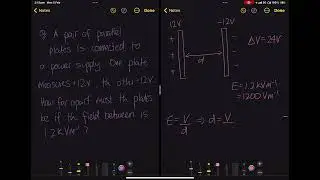 Notes
Done
Notes
Done
Q A pair of parallel
plates is connected to
a power supply. One plate
measures +12V, the other -12V.
How far apart must the plates
be if the field between is
1.2 kVm⁻¹ ?
12V
-12V
ΔV=24V
d
E=1.2 kVm⁻¹
=1200 Vm⁻¹
E = V/d ⇒ d = V/